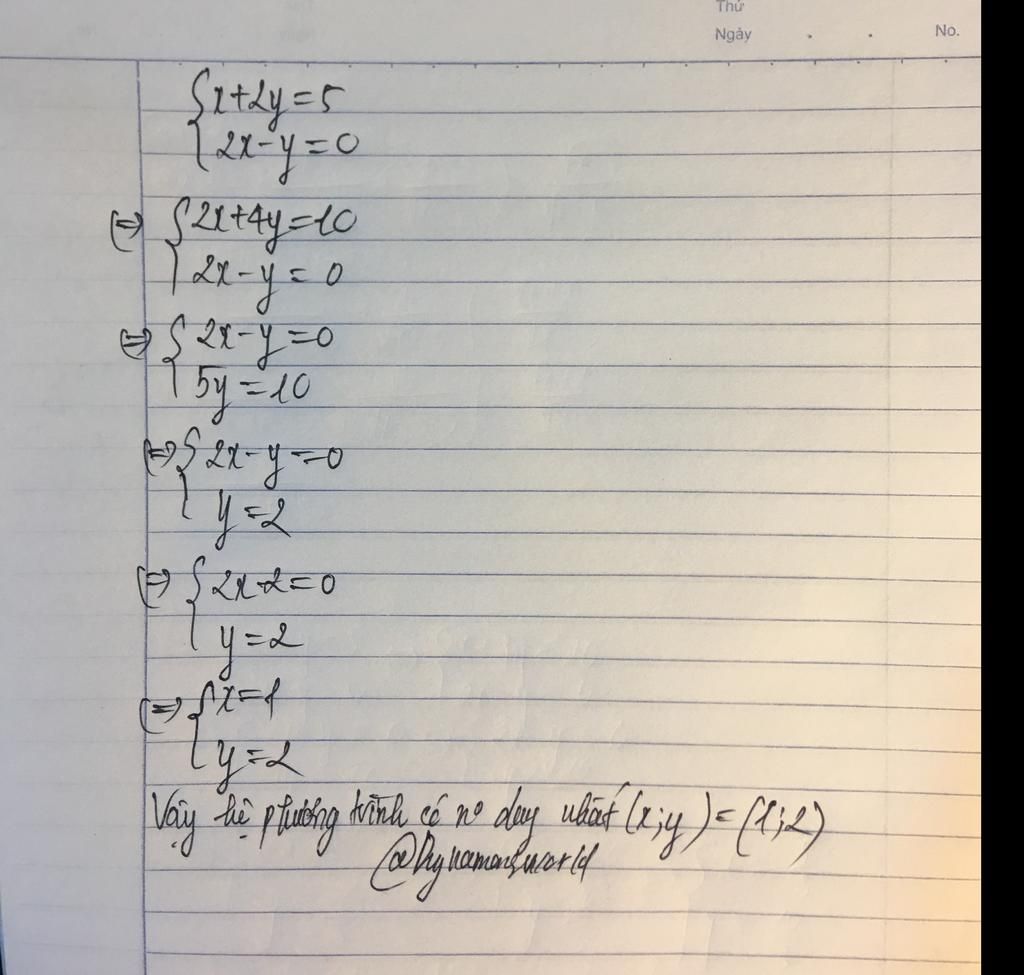 Thứ
Ngày . . No.
{x+2y=5
{2x-y=0
(=) {2x+4y=10
{2x-y=0
(=) {2x-y=0
{5y=10
(=) {2x-y=0
{y=2
(=) {2x-2=0
{y=2
(=) {x=1
{y=2
Vậy hệ phương trình có nº duy nhất (x;y)=(1;2)